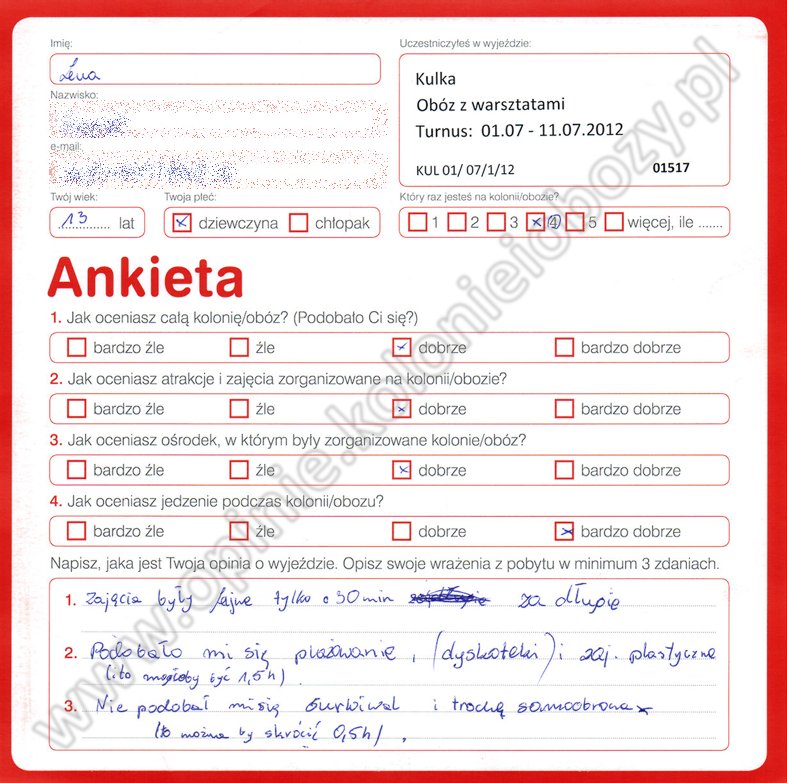 Imię:
Lena
Nazwisko:
e-mail:
Twój wiek:
13 lat
Twoja płeć:
dziewczyna chłopak
Uczestniczyłeś w wyjeździe:
Kulka
Obóz z warsztatami
Turnus: 01.07 - 11.07.2012
KUL 01/ 07/1/12 01517
Który raz jesteś na kolonii/obozie?
1 2 3 4 5 więcej, ile .......
Ankieta
1. Jak oceniasz całą kolonię/obóz? (Podobało Ci się?)
bardzo źle źle dobrze bardzo dobrze
2. Jak oceniasz atrakcje i zajęcia zorganizowane na kolonii/obozie?
bardzo źle źle dobrze bardzo dobrze
3. Jak oceniasz ośrodek, w którym były zorganizowane kolonie/obóz?
bardzo źle źle dobrze bardzo dobrze
4. Jak oceniasz jedzenie podczas kolonii/obozu?
bardzo źle źle dobrze bardzo dobrze
Napisz, jaka jest Twoja opinia o wyjeździe. Opisz swoje wrażenia z pobytu w minimum 3 zdaniach.
1. Zajęcia były fajne tylko o 30 min za długie
2. Podobało mi się plażowanie, (dyskoteki) i zaj. plastyczne
(i to mogłoby być 1,5h)
3. Nie podobał mi się surwiwal i trochę samoobrona
(to można by skrócić 0,5h).
www.opinie.kolonieiobozy.pl